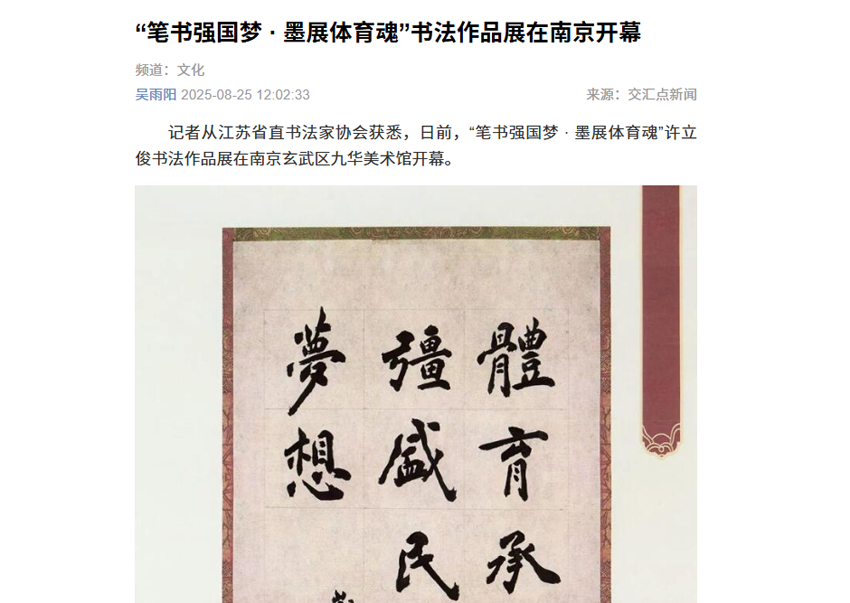 “笔书强国梦 · 墨展体育魂”书法作品展在南京开幕
频道：文化
吴雨阳 2025-08-25 12:02:33
来源：交汇点新闻
记者从江苏省直书法家协会获悉，日前，“笔书强国梦 · 墨展体育魂”许立
俊书法作品展在南京玄武区九华美术馆开幕。
體育承
彊盛民
夢想